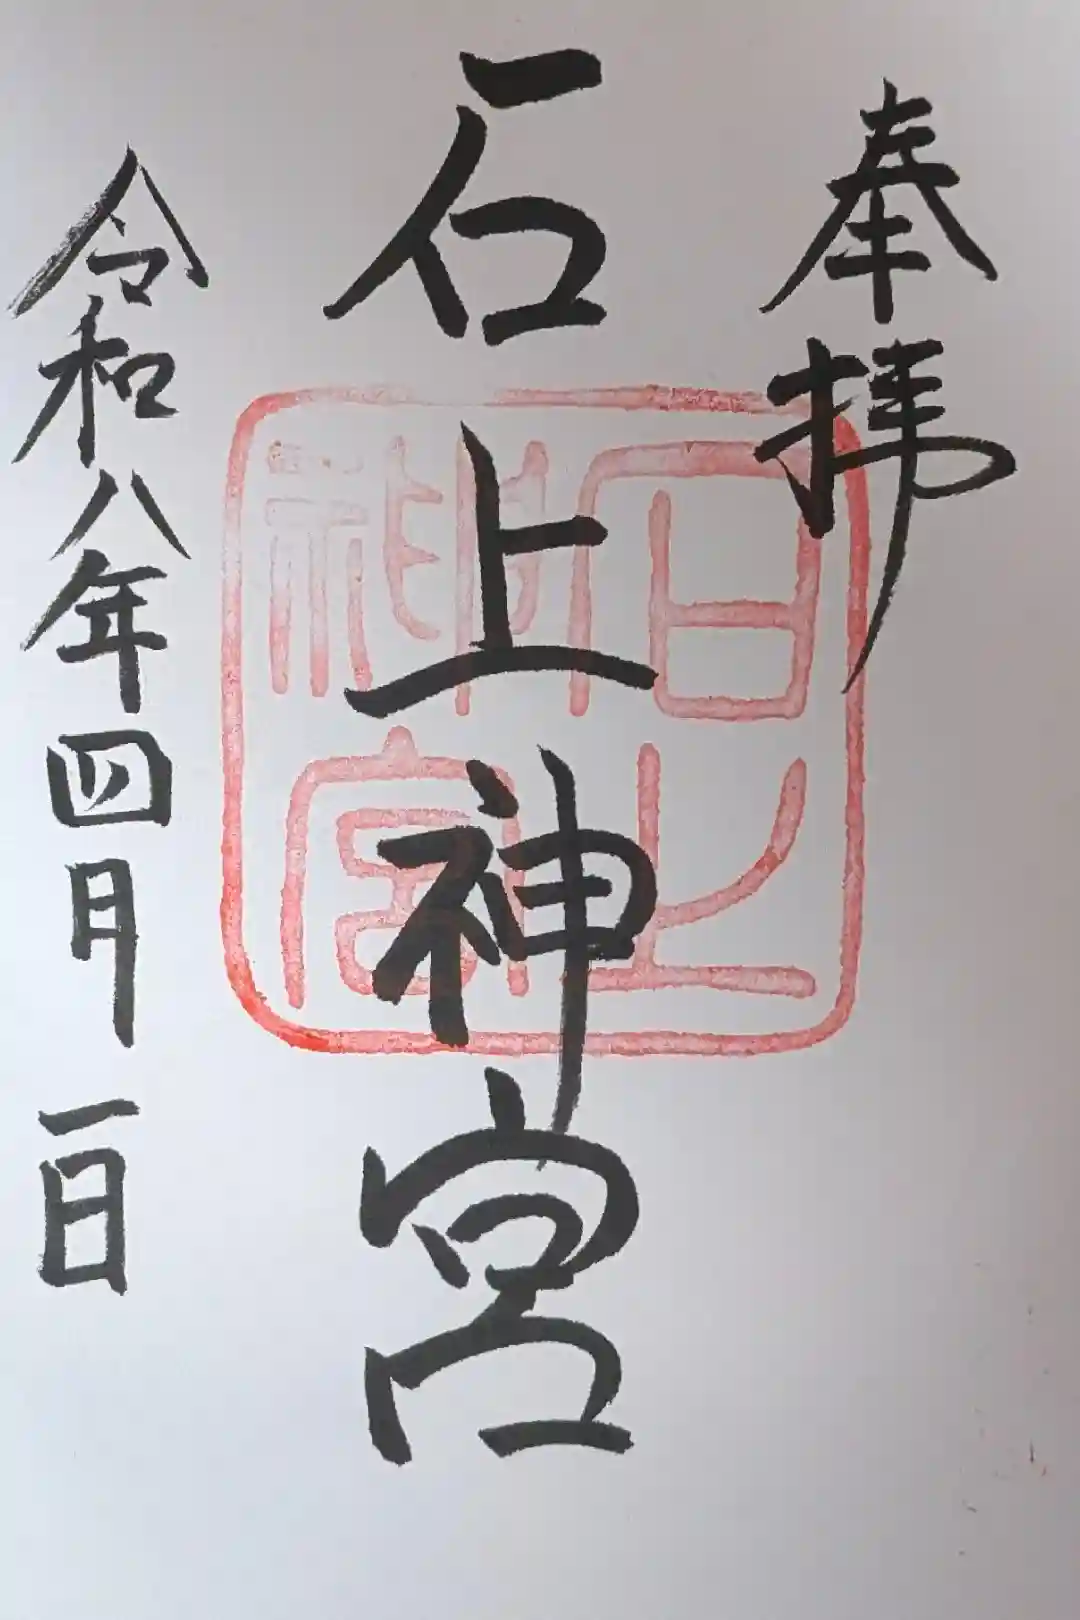 奉拝
石上神宮
石上神宮
令和八年四月一日